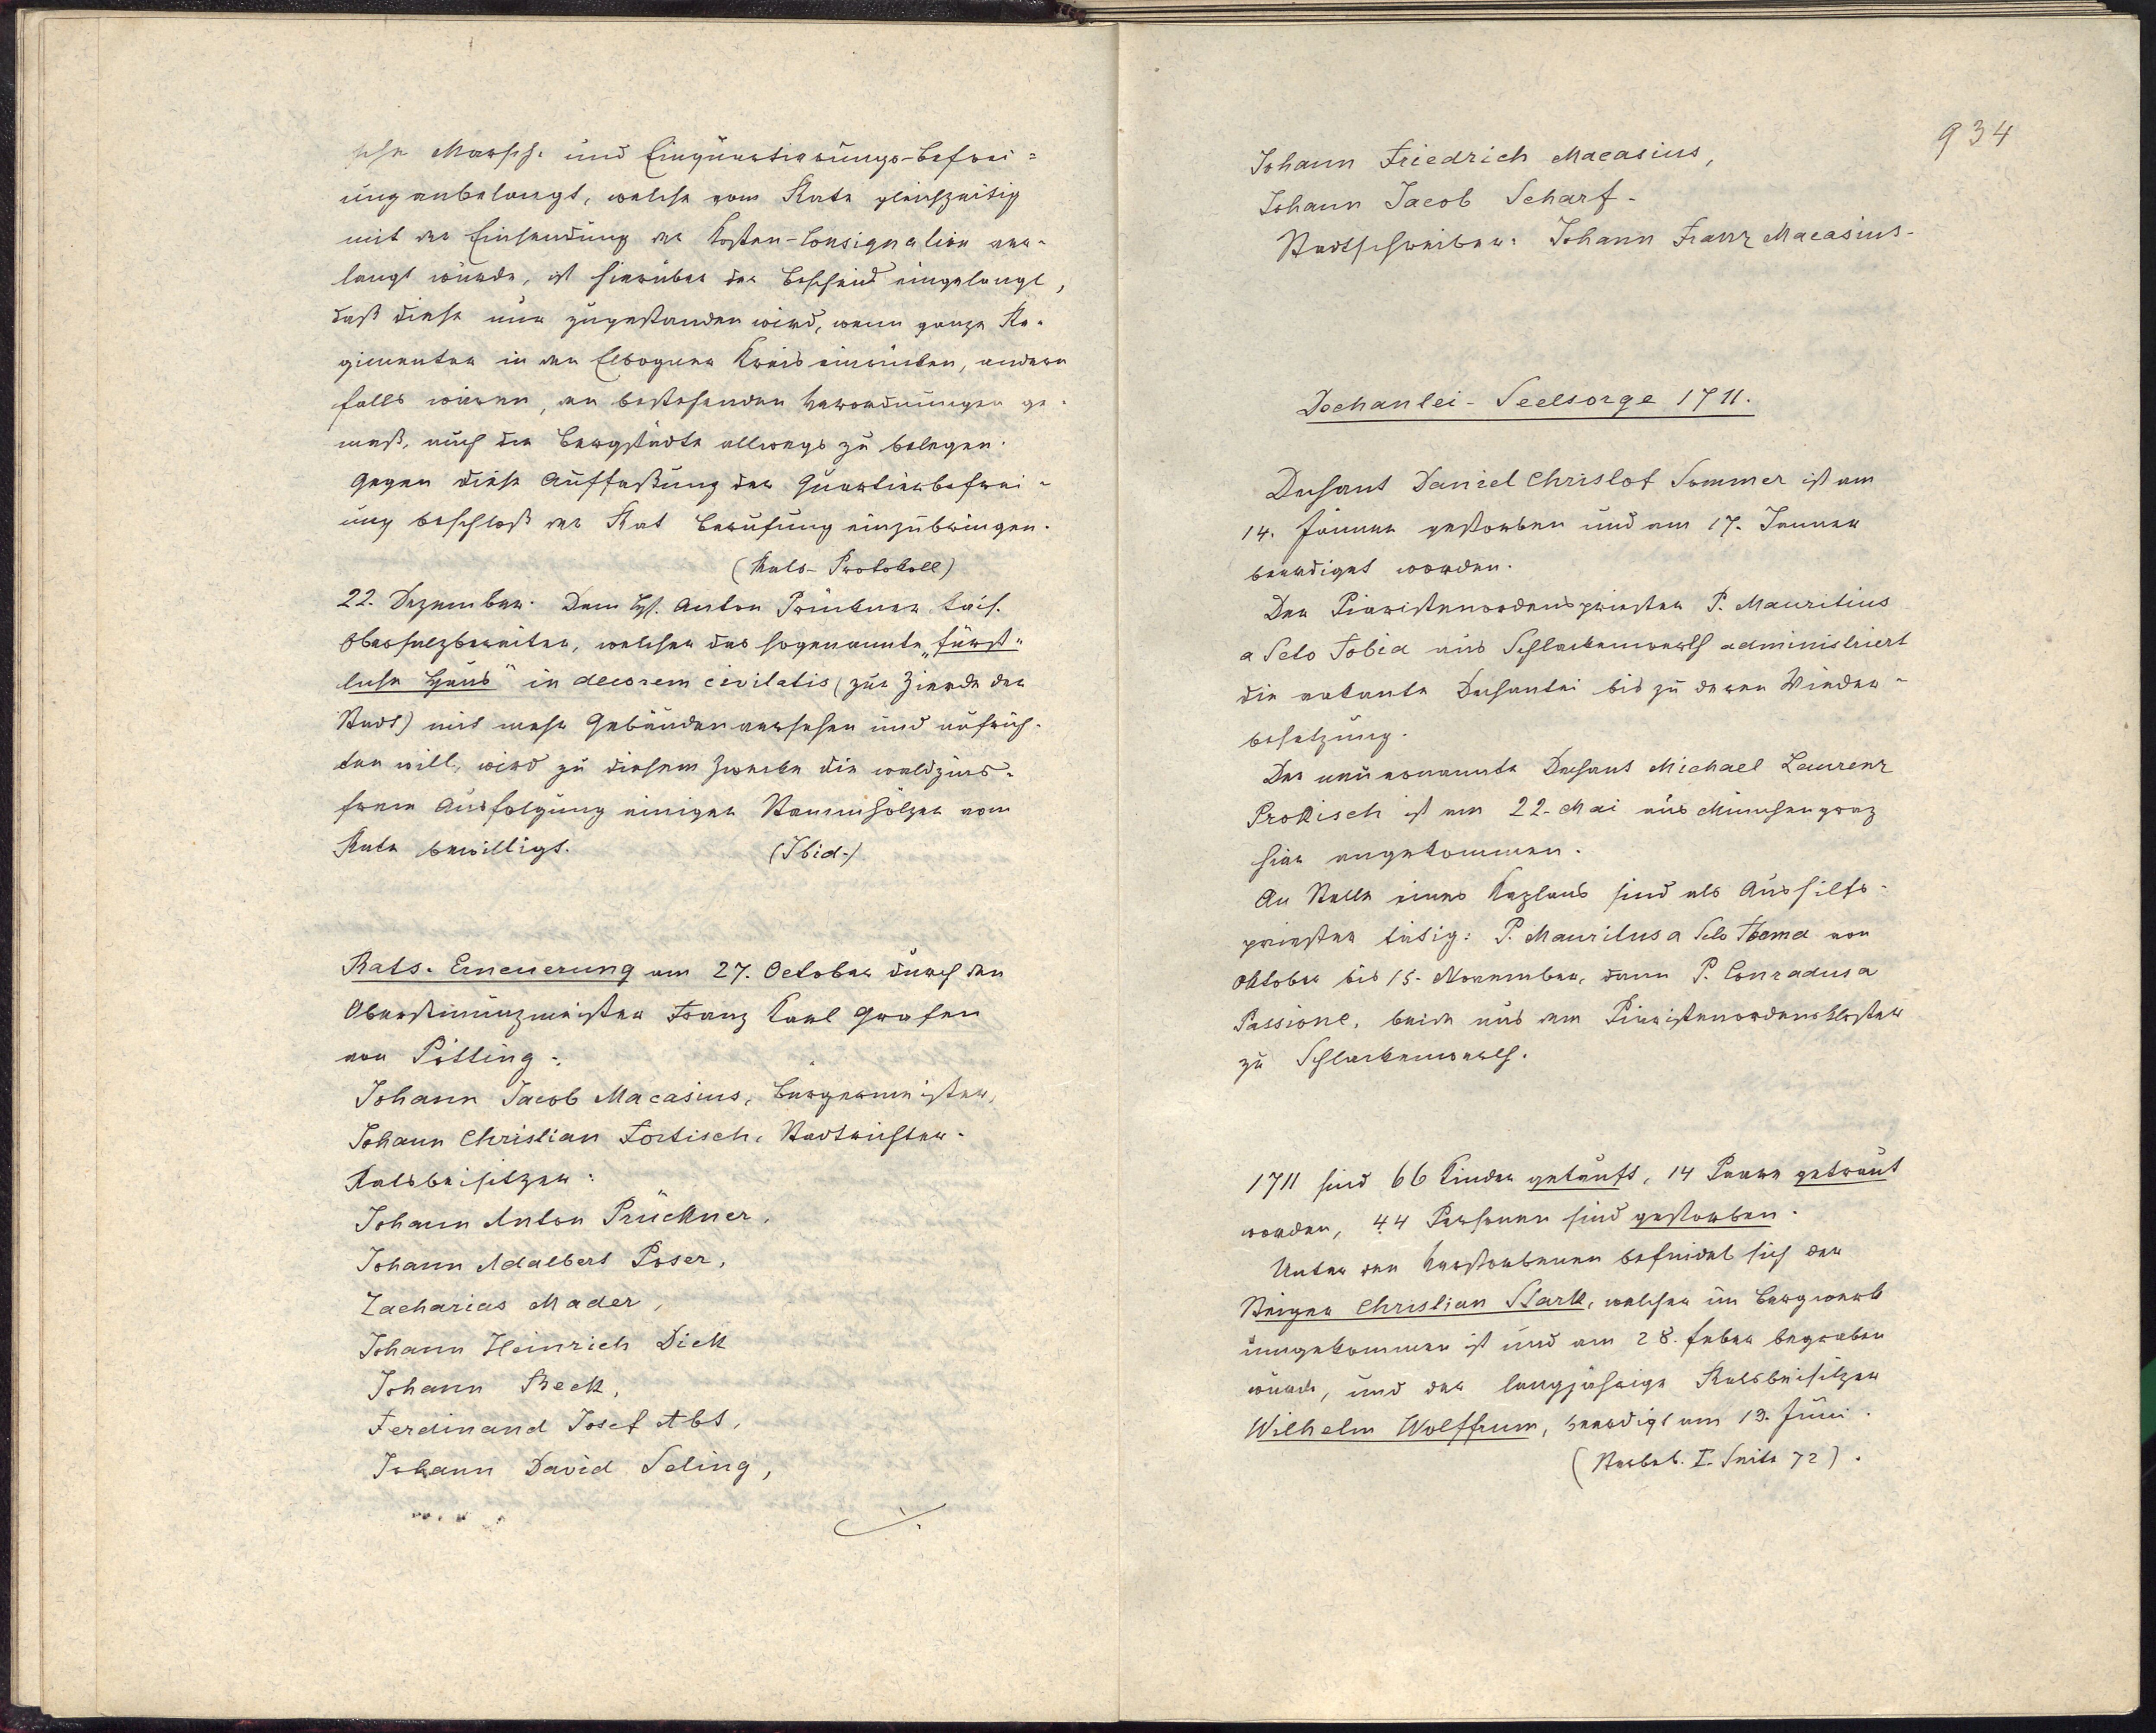 sche Marsch- und Einquartierungs-Befrei=
ung anbelangt, welche vom Rate gleichzeitig
mit der Einsendung der Kosten-Consignation ver-
langt wurde, ist hierüber der Bescheid eingelangt,
daß diese nur zugestanden wird, wenn ganze Re-
gimenter in den Elbogner Kreis einrücken, andern
falls wären, den bestehenden Verordnungen ge-
mäß, auch die Bergstädte allwegs zu belegen.
Gegen diese Auffaßung der Quartierbefrei-
ung beschloß der Rat Berufung einzubringen.
(Rats-Protokoll)
22. Dezember. Dem H. Anton Prückner kais.
Obersalzbereiter, welcher das sogenannte „fürst-
liche Haus“ in decorem civitatis (zur Zierde der
Stadt) mit mehr Gebäuden versehen und aufrich-
ten will, wird zu diesem Zwecke die waldzins-
freie Ausfolgung einiger Stammhölzer vom
Rate bewilligt. (Ibid.)
Rats-Erneuerung am 27. October durch den
Oberstmünzmeister Franz Karl Grafen
von Pötting:
Johann Jacob Macasius, Bürgermeister,
Johann Christian Fortisch, Stadtrichter.
Ratsbeisitzer:
Johann Anton Prückner,
Johann Adalbert Poser,
Zacharias Mader,
Johann Heinrich Dick
Johann Beck,
Ferdinand Josef Abt,
Johann David Seling,
./.
934
Johann Friedrich Macasius,
Johann Jacob Scharf.
Stadtschreiber: Johann Franz Macasius.
Dechantei-Seelsorge 1711.
Dechant Daniel Christof Sommer ist am
14. Jänner gestorben und am 17. Janner
beerdiget worden.
Der Piaristenordenspriester P. Mauritius
a Scto Tobia aus Schlackenwerth administriert
die vakante Dechantei bis zu deren Wieder-
besetzung.
Der neuernannte Dechant Michael Laurenz
Prokisch ist am 22. Mai aus Münchengraz
hier angekommen.
An Stelle eines Kaplans sind als Aushilfs-
priester tätig: P. Mauritus a Scto von
Oktober bis 15. November, dann P. Conradus a
Passione, beide aus dem Piaristenordenskloster
zu Schlackenwerth.
1711 sind 66 Kinder getauft, 14 Paare getraut
worden, 44 Personen sind gestorben.
Unter den Verstorbenen befindet sich der
Steiger Christian Stark, welcher im Bergwerk
umgekommen ist und am 28. Feber begraben
wurde, und der langjährige Ratsbeisitzer
Wilhelm Wolffrum, beerdigt am 19. Juni.
(Sterbeb. I. Seite 72).